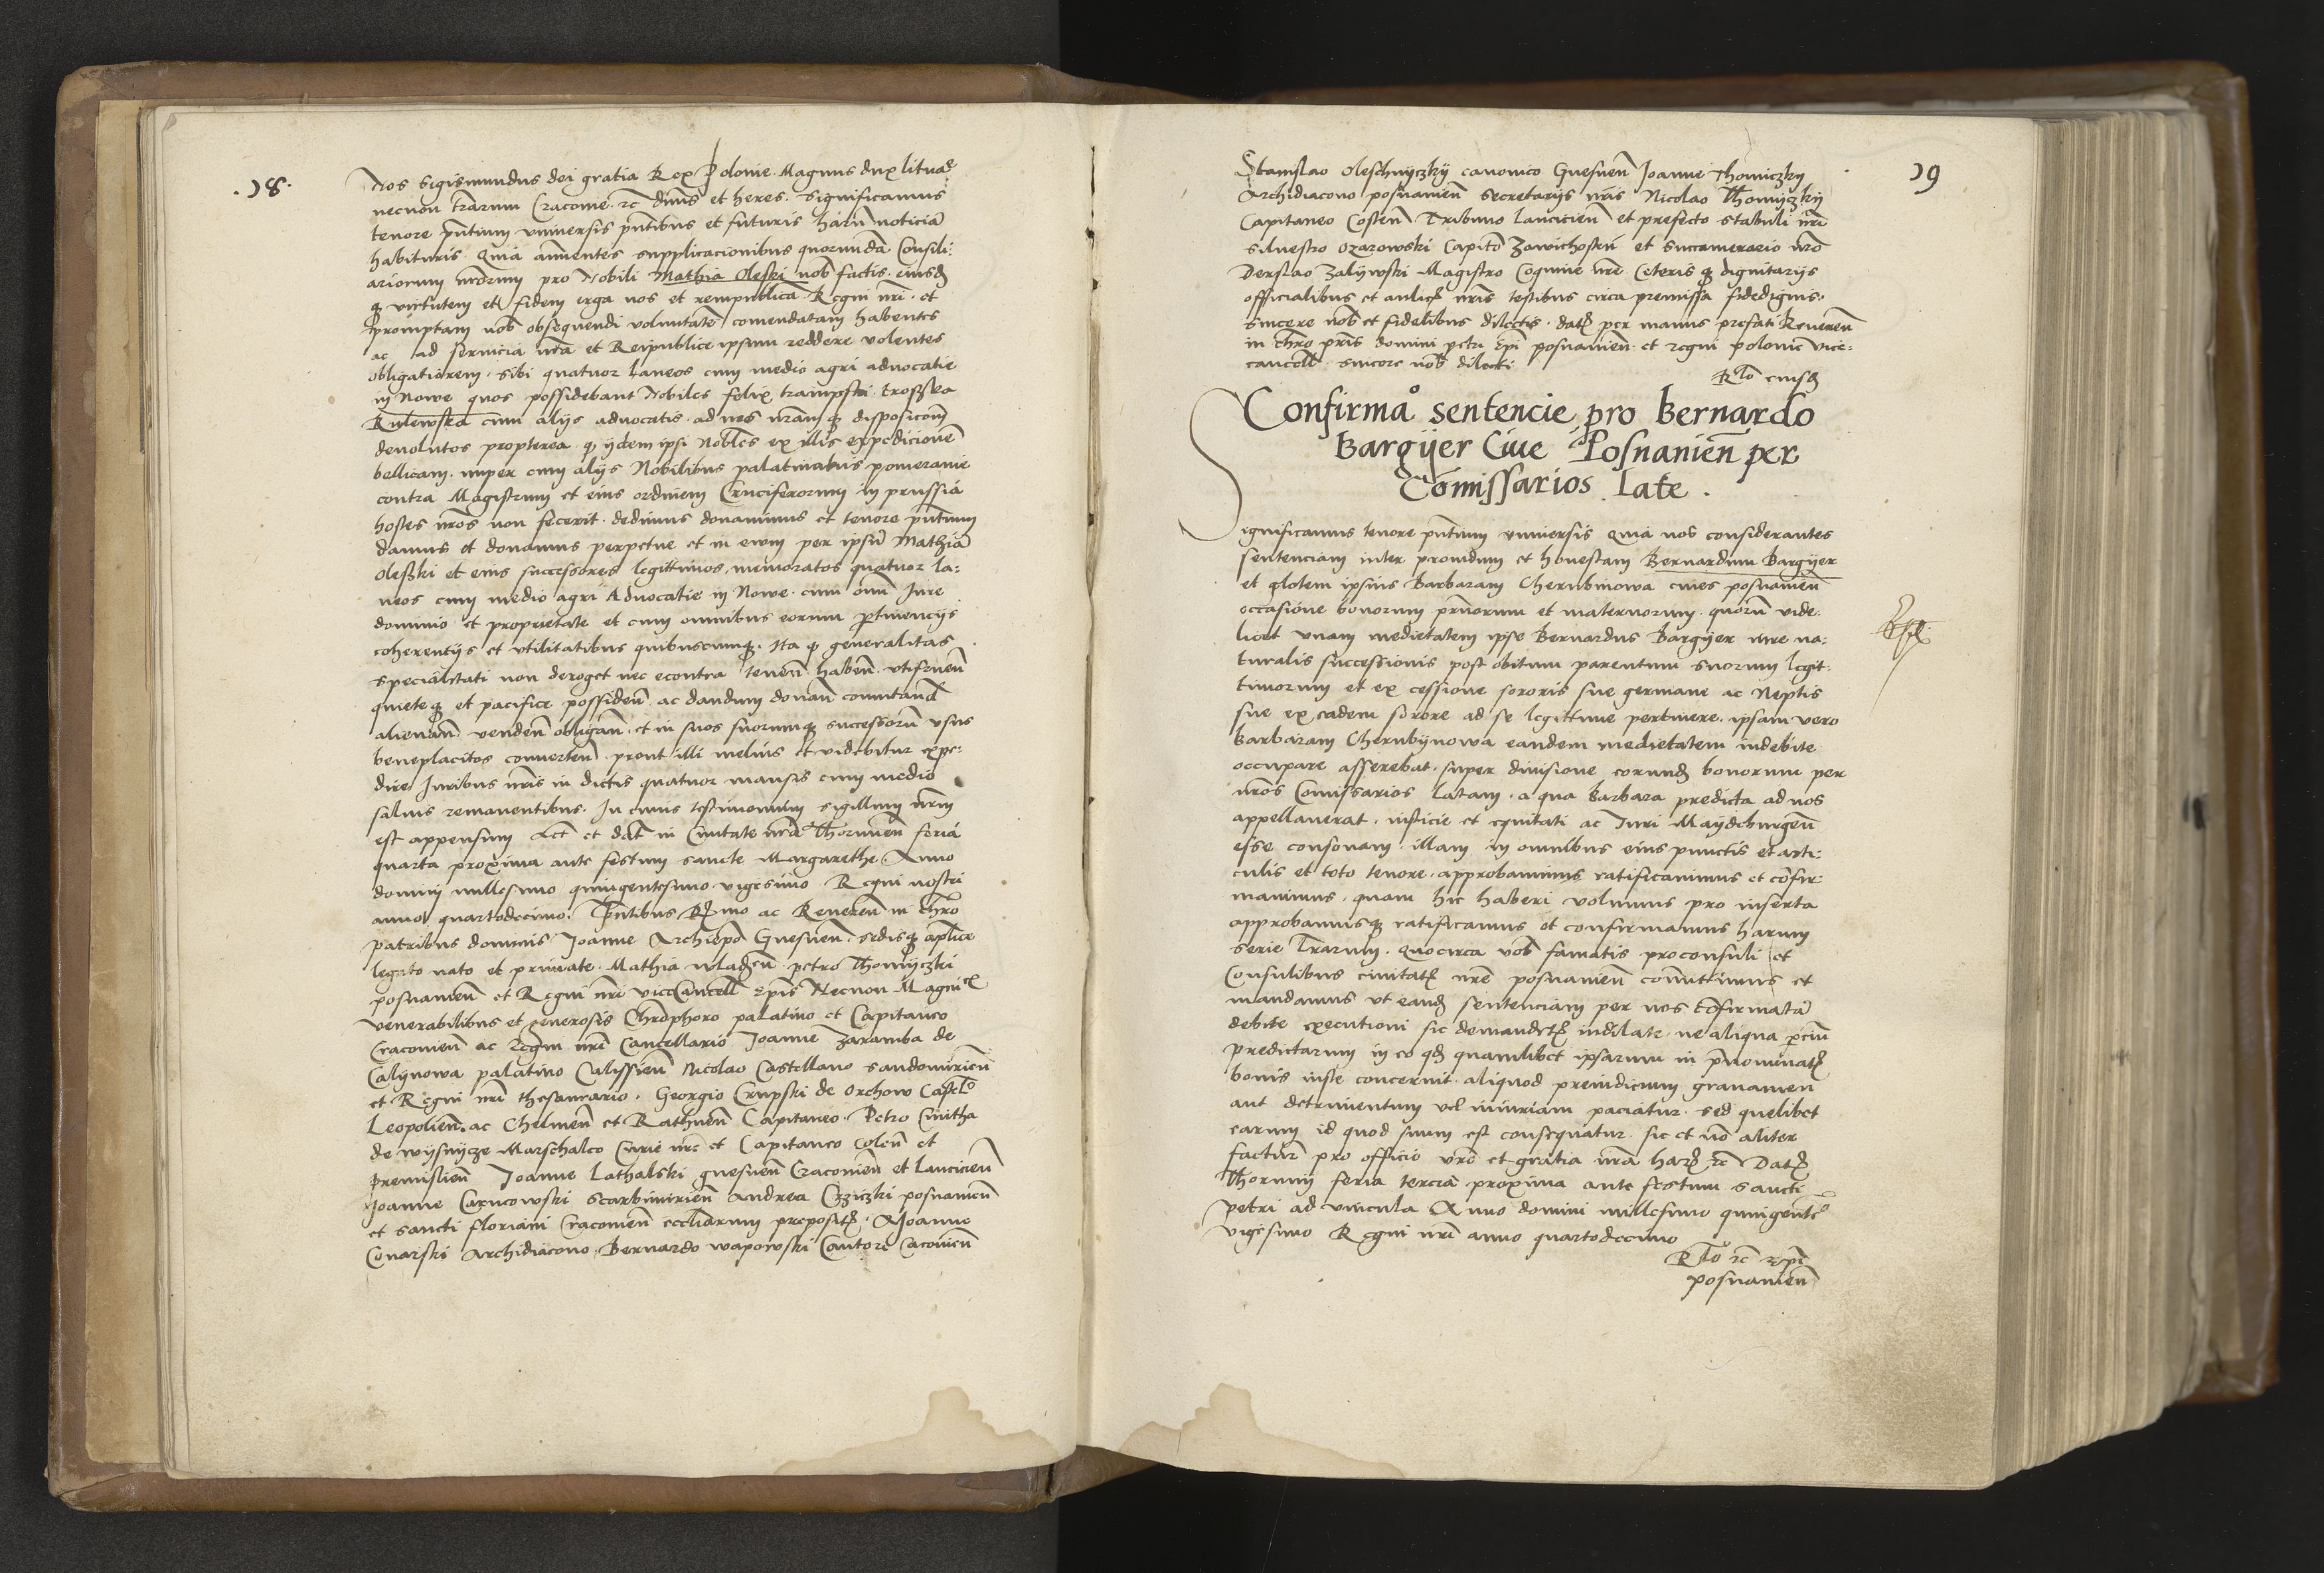 .18.
Nos Sigismundus dei gratia Rex Polonie Magnus dux lituaᵉ
necnon tr̄arum Cracouie rc̄ dn̄us et heres. Significamus
tenore p̄ntium vniuersis p̄ntibus et futuris harū noticiā
habituris. Quia annuentes supplicacionibus quorundā Consili:
ariorum nr̄orum pro Nobili Mathia Oleski nob̄ factis. eiusdꝫ
qꝫ virtutem et fidem erga nos et rempublicā Regni nr̄i. et
promptam nob̄ obsequendi voluntatē comendatam habentes
ac ad seruicia nr̄a et Reipublice ipsum reddere volentes
obligatiorem. sibi quatuor laneos cum medio agri aduocatie
in Nowe quos possidebant Nobiles felix trampski
Kulewska cum alijs aduocatis. ad nos nr̄amqꝫ disposicionē
deuolutos propterea qꝫ ijdem ipsi Nobiles ex illis expedicionē
bellicam. nuper cum alijs Nobilibus palatinatus pomeranie
contra Magistrum et eius ordinem Cruciferorum in prussia
hostes nr̄os non fecerit. dedimus donauimus et tenore p̄ntium
damus et donamus perpetue et in ewm per ipsū Mathiā
Oleski et eius successores legittimos. memoratos quatuor la:
neos cum medio agri Aduocatie in Nowe. cum om̄i Jure
dominio et proprietate et cum omnibus eorum ꝑtinencijs
coherentijs et vtilitatibus quibuscumqꝫ. Ita qꝫ generalitas
specialitati non deroget nec econtra tenen̄ haben̄. vtifruen̄
quieteqꝫ et pacifice possiden̄. ac dandum donan̄ comutand̄
alienan̄ venden̄ obligan̄. et in suos suorumqꝫ successorū vsus
beneplacitos conuerten̄. prout illi melius et videbitur expe:
dire Juribus nr̄is in dictis quatuor mansis cum medio
saluis remanentibus. In cuius testimonium sigillum nr̄um
est appensum Act̄ et dat̄ in Ciuitate nr̄a Thorunen̄ feria
quarta proxima ante festum sancte Margarethe Anno
domini millesimo quingentesimo vigesimo Regni nostri
anno quartodecimo. P̄ntibus R̄mo ac Reueren̄ in chr̄o
patribus dominis Joanne Archiep̄o Gnesnen̄. sedisqꝫ aplice
legato nato et primate. Mathia wladꝫ̄ petro Thomyczki
posnanien̄ et Regni nr̄i viceCancell̄ Ep̄is Necnon Magnicꝫ
venerabilibus et generosis Chr̄ophoro palatino et Capitaneo
Cracouien̄ ac Regni nr̄i Cancellario Joanne Zaramba de
Calynowa palatino Calissien̄ Nicolao Castellano sandomirien̄
et Regni nr̄i thesaurario. Georgio Crupski de Orchow Castel̄o
Leopolien̄. ac Chelmen̄ et Rathnen̄ Capitaneo. Petro Cmitha
de wysnycze Marschalco Curie nr̄e et Capitaneo Colen̄ et
premislien̄ Joanne Lathalski gnesnen̄ Cracouien̄ et lancicien̄
Joanne Carncowski Scarbimirien̄ Andrea Crziczki posnanien̄
et sancti floriani Cracouien̄ eccl̄iarum prepositꝫ. Joanne
Conarski Archidiacono Bernardo wapowski Cantore Cacouien̄
19
Stanislao Oleschnyczky canonico Gnesnen̄ Joanne Thomiczky
Archidiacono posnanien̄ secretarijs nr̄is Nicolao Thomyczky
Capitaneo Costen̄ Tribuno lancicien̄ et prefecto stabuli nr̄i
siluestro Ozarowski Capito̅ Zawichosten̄ et succamerario nr̄o
Derslao Zalywski Magistro Coquine nr̄e Ceterisqꝫ dignitarijs
officialibus et aulicꝫ nr̄is testibus circa premissa fidedignis.
sincere nob̄ et fidelibus dilectis. datꝫ per manus prefati Reueren̄
in chr̄o pr̄is domini petri Ep̄i posnanien̄. et regni polonie vice:
cancell̄. sincere nob̄ dilecti
Rl̄o eiusdꝫ
Confirmaº sentencie pro Bernardo
Bargyer Ciue Posnanien̄ per
Comissarios late.
Significamus tenore p̄ntium vniuersis Quia nos considerantes
sentenciam inter prouidum et honestam Bernardum Bargyer
et glotem ipsius Barbaram Cherubinowa ciues posnanien̄
occasione bonorum pr̄norum et maternorum. quorū vide:
licet vnam medietatem ipse Bernardus Bargyer iure na:
turalis successionis post obitum parentum suorum legit:
timorum et ex cessione sororis sue germane ac Neptis
sue ex eadem sorore ad se legittime pertinere. ipsam vero
Barbaram Cherubynowa eandem medietatem indebite
occupare asserebat. super diuisione eorundꝫ bonorum per
nr̄os Comissarios latam. a qua Barbara predicta ad nos
appellauerat. iusticie et equitati ac Juri Maydeburgen̄
esse consonam. illam in omnibus eius punctis et arti:
culis et toto tenore. approbauimus ratificauimus et cōfir:
mauimus. quam hic haberi volumus pro inserta
approbamusqꝫ ratificamus et confirmamus harum
serie lr̄arum. Quocirca vob̄ famatis proconsuli et
Consulibus ciuitatꝫ nr̄e posnanien̄ com̄ittimus et
mandamus vt eandꝫ sentenciam per nos cōfirmatā
debite executioni sic demandetꝫ indilate. ne aliqua ꝑciū
predictarum in eo qdꝫ quamlibet ipsarum in p̄nominatꝫ
bonis iuste concernit. aliquod preiudicium grauamen
aut detrimentum vel iniuriam paciatur. sed quelibet
earum id quod suum est consequatur. sic et nō aliter
factur̄ pro officio vr̄o et gratia nr̄a harꝫ rc̄ Datꝫ
Thorunij feria tercia proxima ante festum sancti
Petri ad vincula Anno domini millesimo quingenteº
vigesimo Regni nr̄i anno quartodecimo
Rl̄o rc̄ Ep̄i
posnanien̄